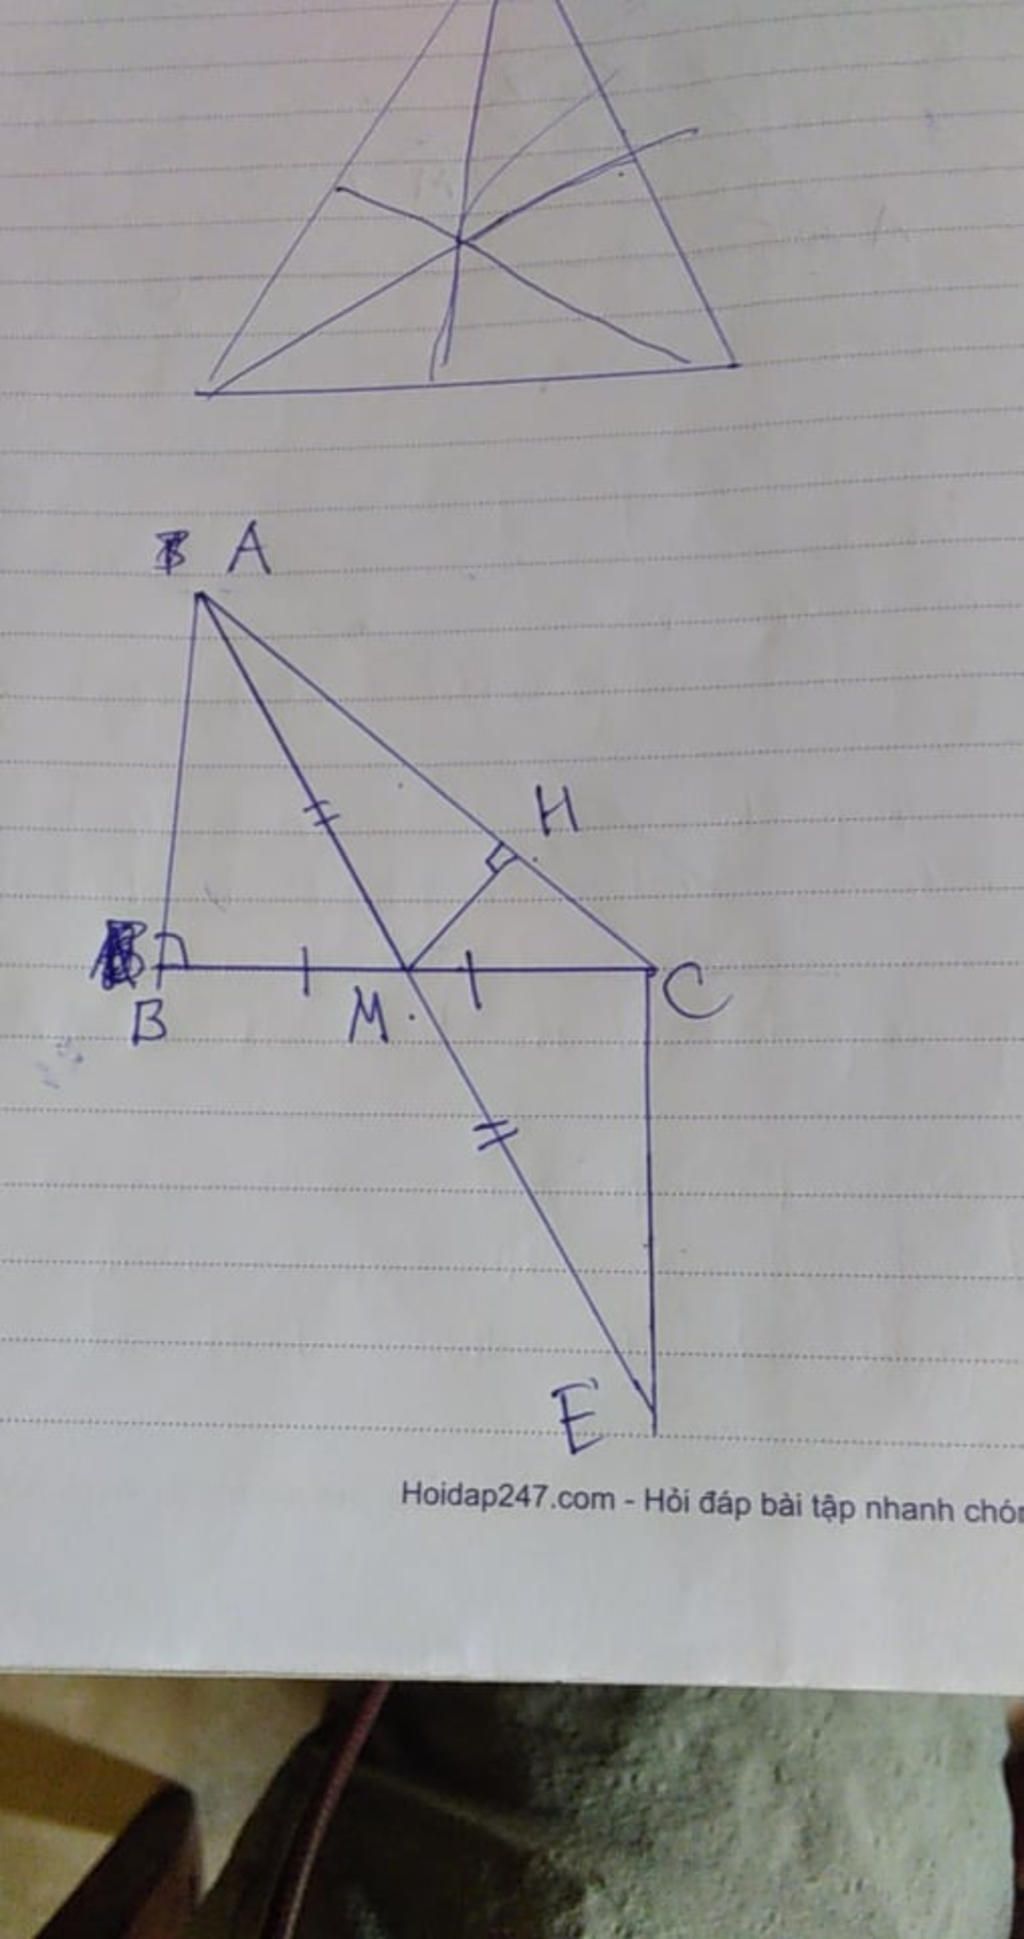 A
H
B
M
C
E
Hoidap247.com - Hỏi đáp bài tập nhanh